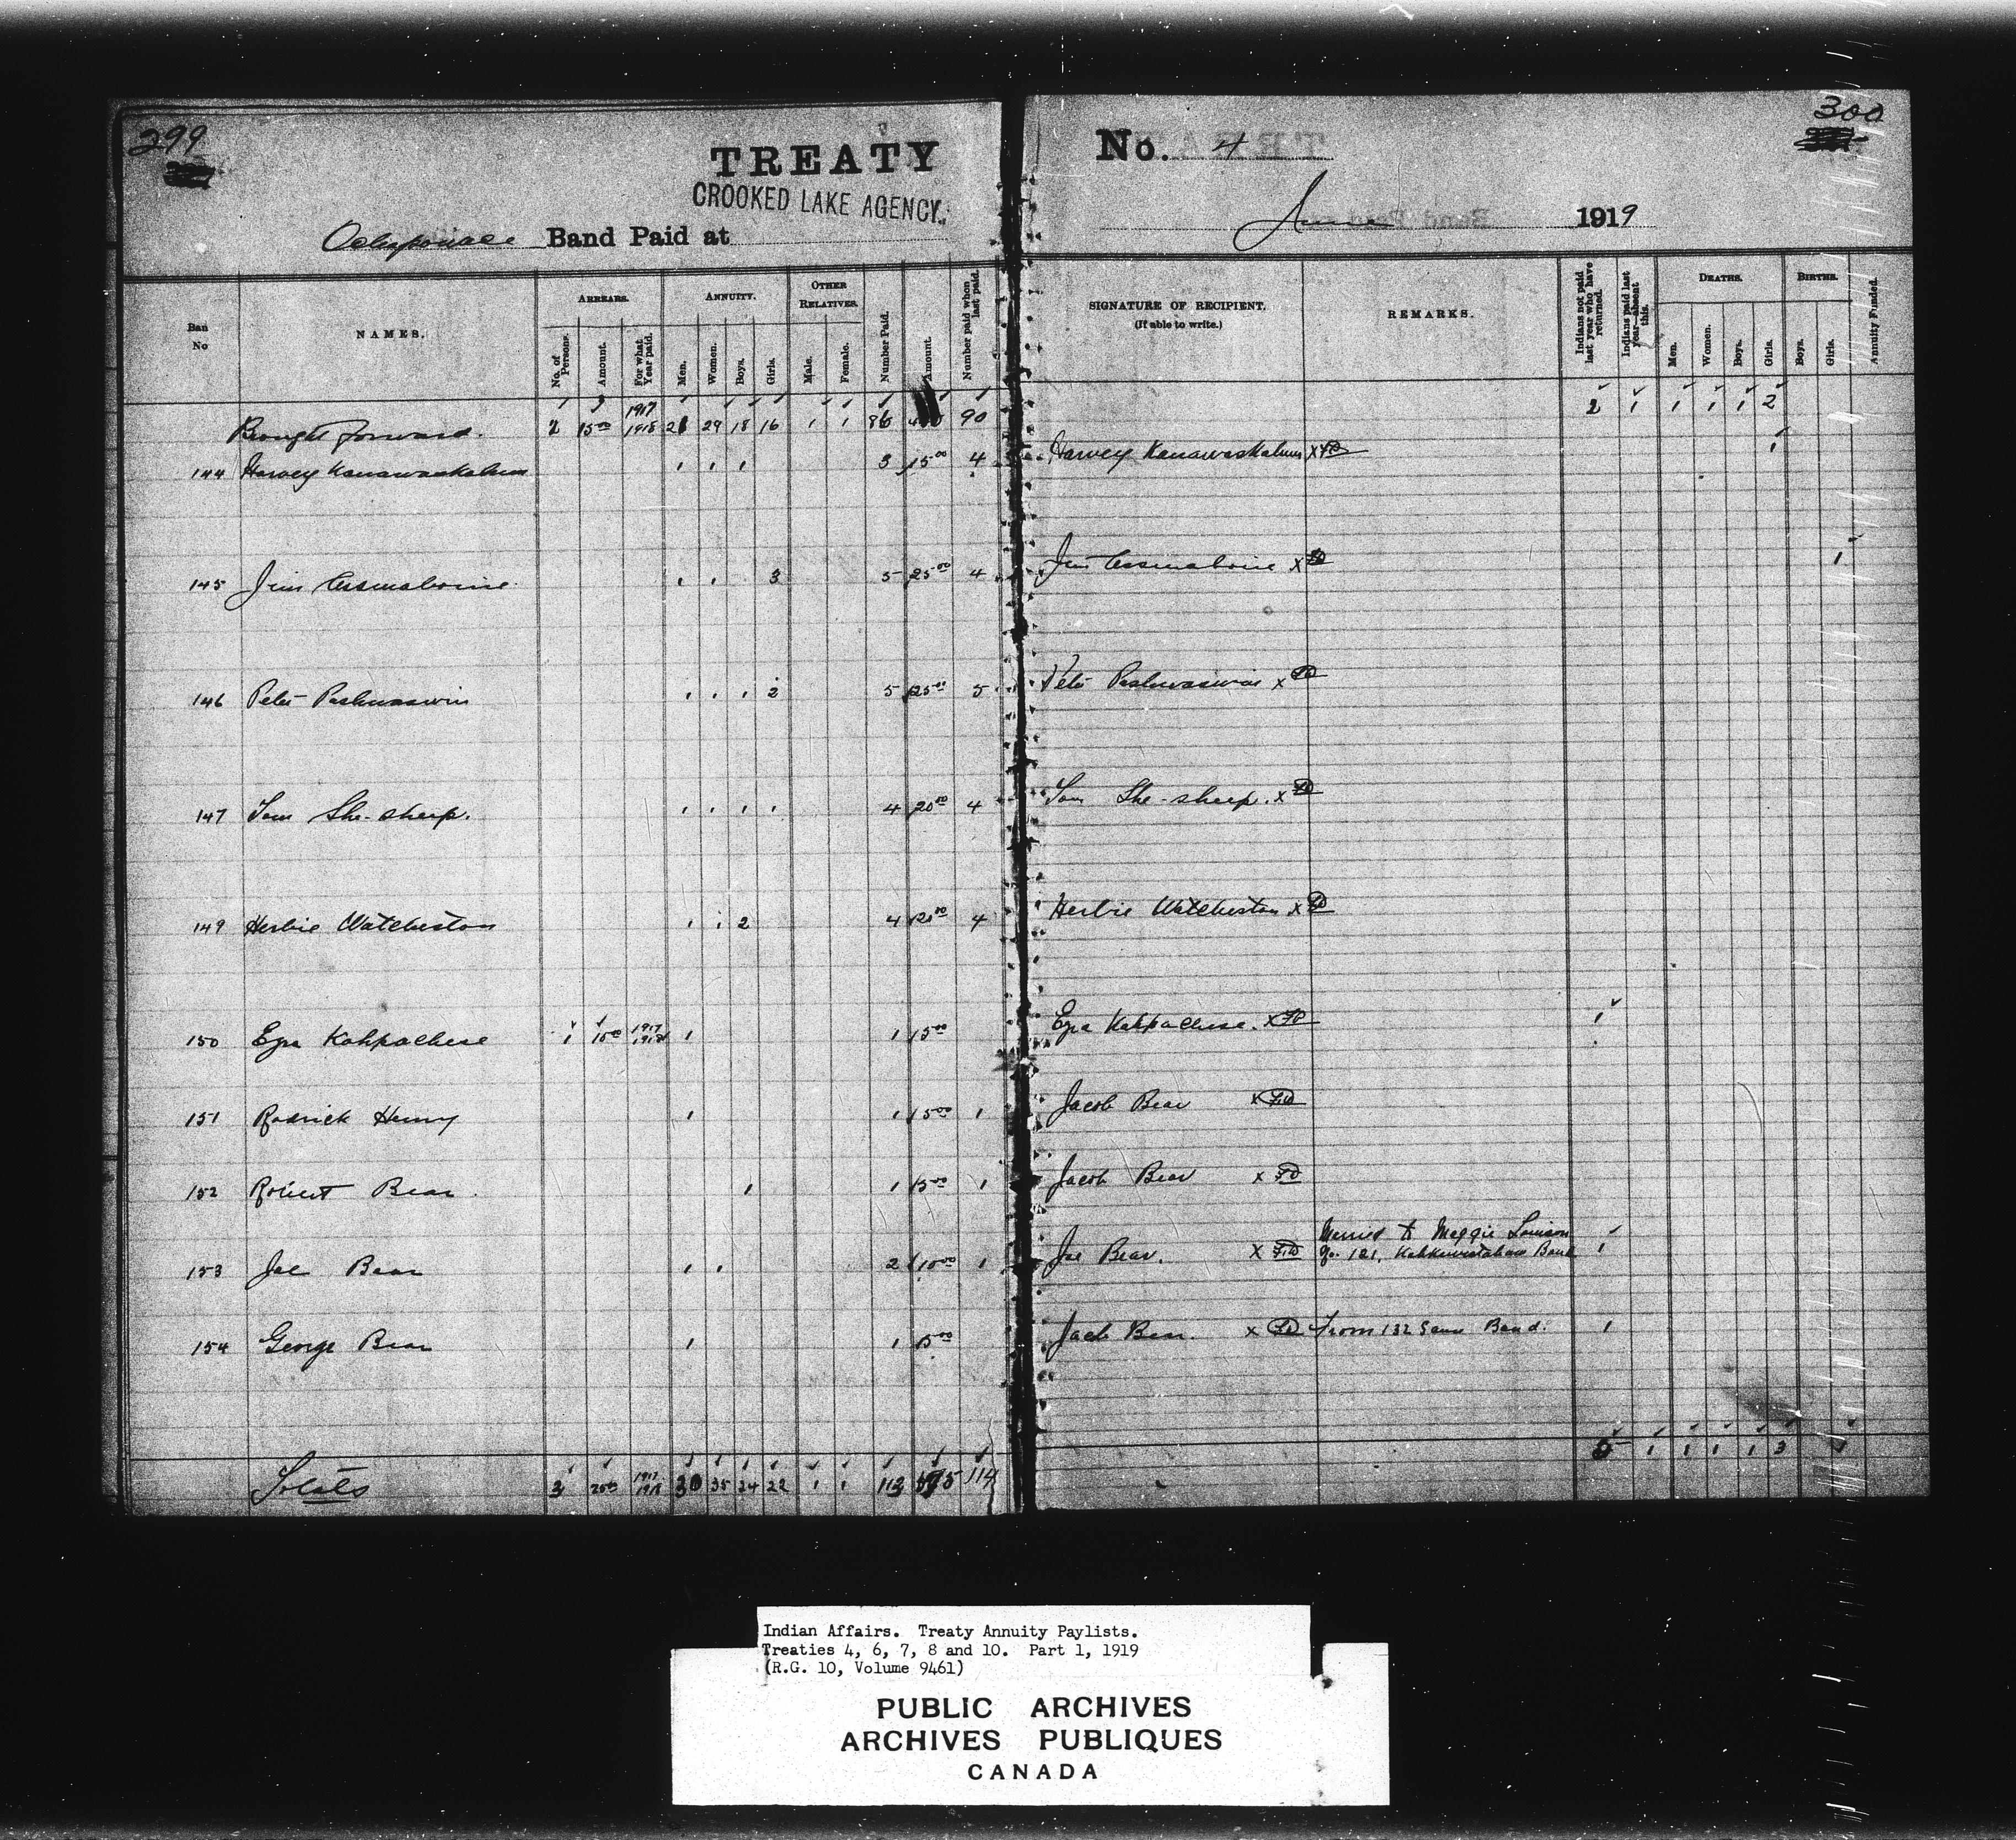 299
300
TREATY No. 4
CROOKED LAKE AGENCY.
Band Paid at June 1919
Ban No
NAMES.
ARREARS.
No. of Persons.
Amount.
For what Year paid.
ANNUITY.
Men.
Women.
Boys.
Girls.
OTHER RELATIVES.
Male.
Female.
Number Paid.
Amount.
Number paid when last paid.
SIGNATURE OF RECIPIENT.
(If able to write.)
REMARKS.
Indians not paid last year who have returned.
Indians paid last year—absent this.
DEATHS.
Men.
Women.
Boys.
Girls.
BIRTHS.
Boys.
Girls.
Annuity Funded.
Brought forward. 2 15 00 1917 1918 29 18 16 1 1 86 90 2 1 1 1 1 2
144 Harvey Kanawaskahum 1 1 1 3 15 00 4 Harvey Kanawaskahum x 1
145 Jim Assinaboine 1 1 3 5 25 00 4 Jim Assinaboine x 1
146 Peter Pashwaswin 1 1 1 2 5 25 00 5 Peter Pashwaswin x
147 Tom She-sheep. 1 1 1 1 4 20 00 4 Tom She-sheep. x
149 Herbie Watcheston 1 1 2 4 20 00 4 Herbie Watcheston x
150 Ezra Kahpachese 1 10 00 1917 1918 1 1 5 00 Ezra Kahpachese. x 1
151 Rodrick Henry 1 1 5 00 1 Jacob Bear x
152 Robert Bear 1 1 5 00 1 Jacob Bear x
153 Joe Bear 1 1 2 10 00 1 Joe Bear. x Married to Maggie Louison 1
No. 121, Kahkewistahaw Band
154 George Bear 1 1 5 00 Jacob Bear. x From 132 Same Band. 1
Totals 3 25 00 1917 1918 30 35 24 22 1 1 113 114 5 1 1 1 1 3 1
Indian Affairs. Treaty Annuity Paylists.
Treaties 4, 6, 7, 8 and 10. Part 1, 1919
(R.G. 10, Volume 9461)
PUBLIC ARCHIVES
ARCHIVES PUBLIQUES
CANADA